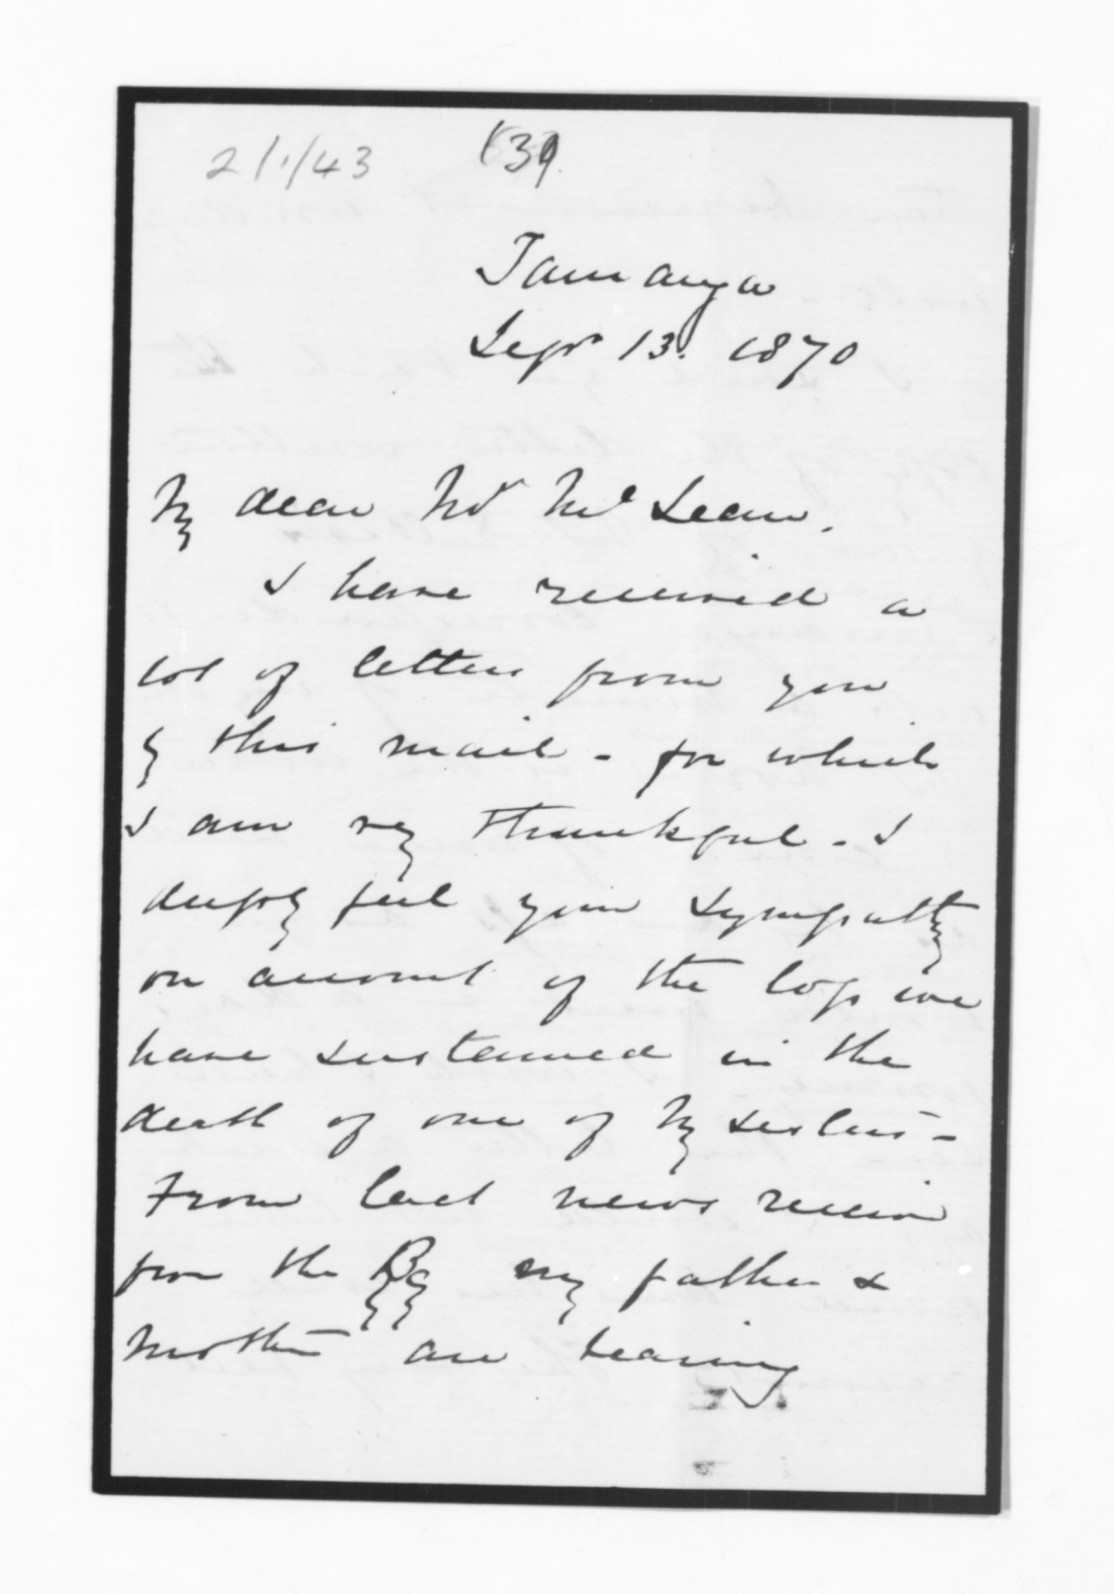 2/1/43 (39
Tauranga
Sepr 13. 1870
My dear Mr McLean.
I have received a
lot of letters from you
by this mail - for which
I am very thankful - I
deeply feel your sympathy
on account of the loss we
have sustained in the
death of one of my sisters -
From last news receivd
from the Bay my father &
mother are bearing